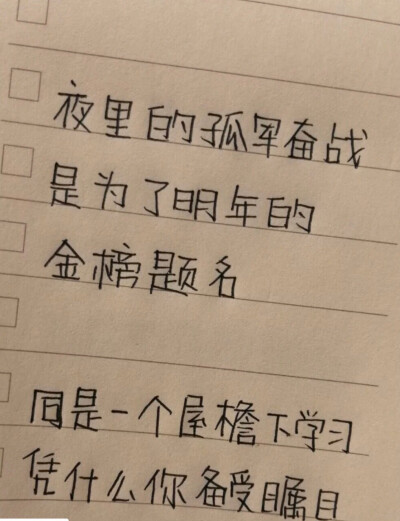 夜里的孤军奋战
是为了明年的
金榜题名
同是一个屋檐下学习
凭什么你备受瞩目